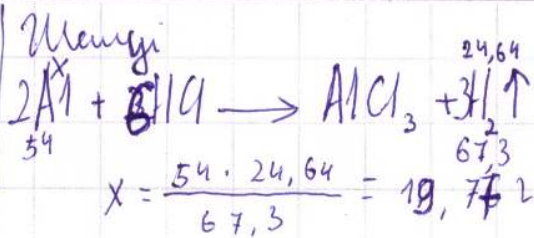 Шешуі
x 24,64
2Al + 6HCl ⟶ AlCl₃ + 3H₂↑
54 67,3
x = 54 · 24,64 / 67,3 = 19,77 г